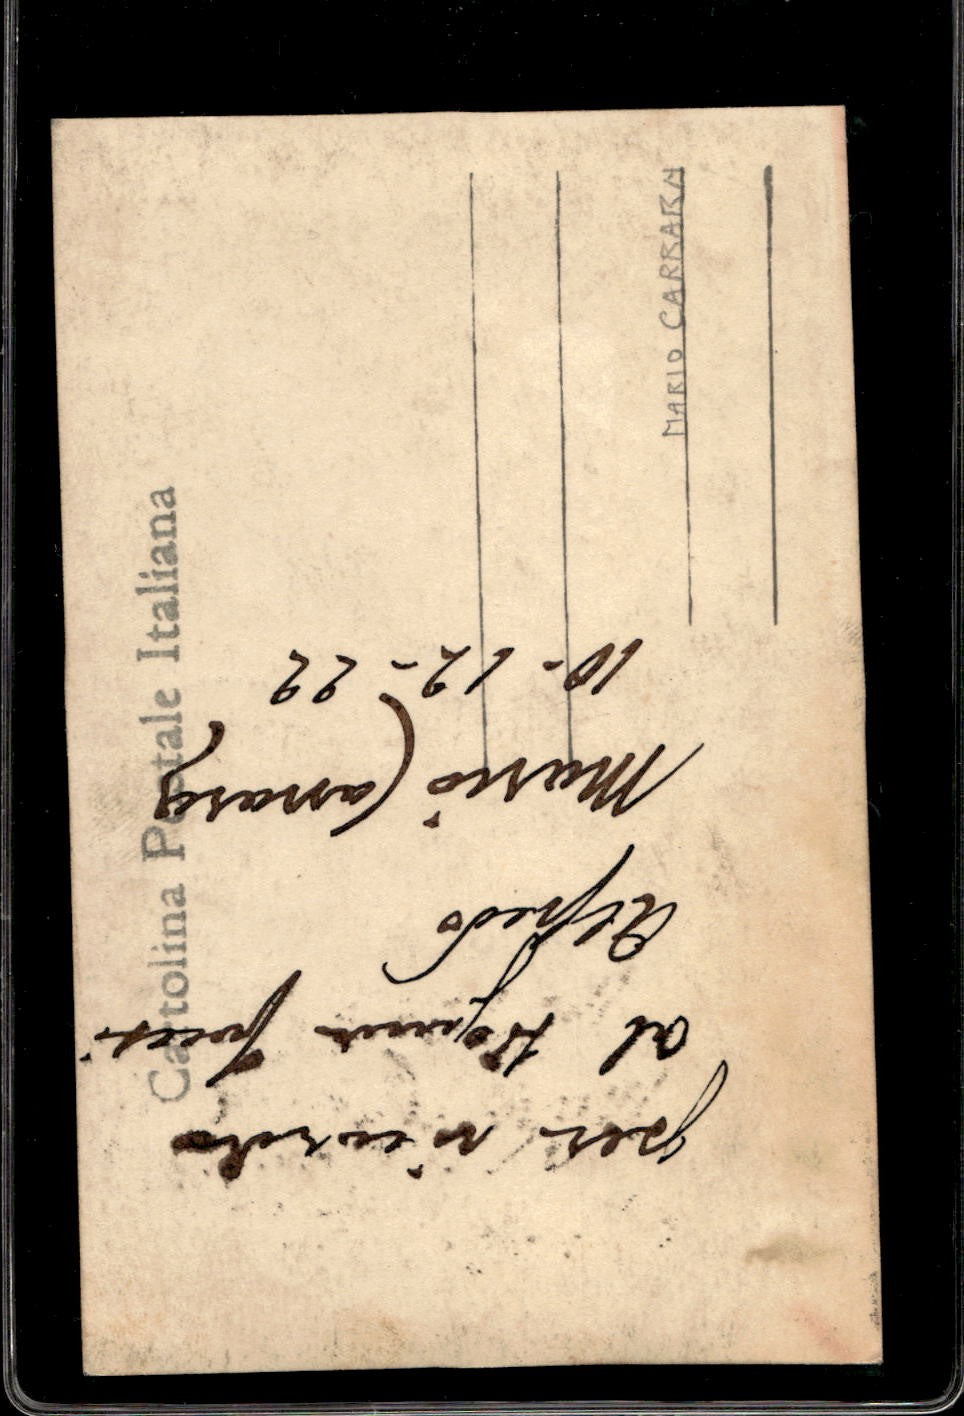 Cartolina Postale Italiana
MARIO CARRARA
per ricordo
al
Alfredo
Mario Carrara
10-12-22